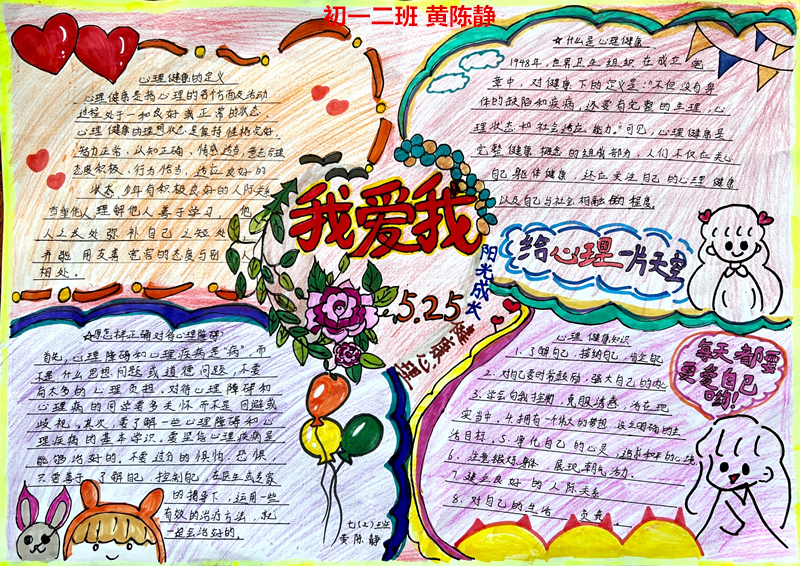 初一二班 黄陈静
心理健康的定义
心理健康是指心理的各个方面及活动
过程处于一种良好或正常的状态.
心理健康的理想状态是保持性格完好.
智力正常、认知正确、情感适当、意志合理
态度积极、行为恰当、适应良好的
状态.
理解他人善于学习,他
人之长处弥补自己之短处
并能用友善宽容的态度与别人
相处.
☆什么是心理健康
1948年,世界卫生组织在成立
章中,对健康下的定义是:"不但没有身
体的缺陷和疾病,还要有完整的生理,心
理状态和社会适应能力."可见,心理健康是
完整健康概念的组成部分,人们不仅应关心
自己躯体健康,还应关注自己的心理健康
以及自己与社会相融合的程度.
我爱我
给心理一片天空
阳光成长
5.25
健康心理
☆怎样正确对待心理障碍
首先,心理障碍和心理疾病是"病",而
不是什么思想问题或道德问题,不要
有太多的心理负担.对待心理障碍和
心理病的同学要多关怀而不是回避或
歧视,其次,要了解一些心理障碍和心
理疾病的基本常识.要坚信心理疾病是
能够治好的,不要过分的惧怕.恐惧,
只要善于了解自己,控制自己,在医生或专家
的指导下,运用一些
有效的治疗方法,就
一定会治好的.
七(2)班
黄陈静
心理健康知识
1.了解自己,接纳自己,肯定自己
2.对自己要时有鼓励,强大自己的内心
3.学会自我控制,克服诱惑,活在现
实当中.4.拥有一个伟大的梦想,设立明确的生
活目标.5.净化自己的心灵,追求和平的心境
6.注意锻炼身体,展现朝气活力.
7.建立良好的人际关系
8.对自己的生活负责.
每天都要
更爱自己
哟!